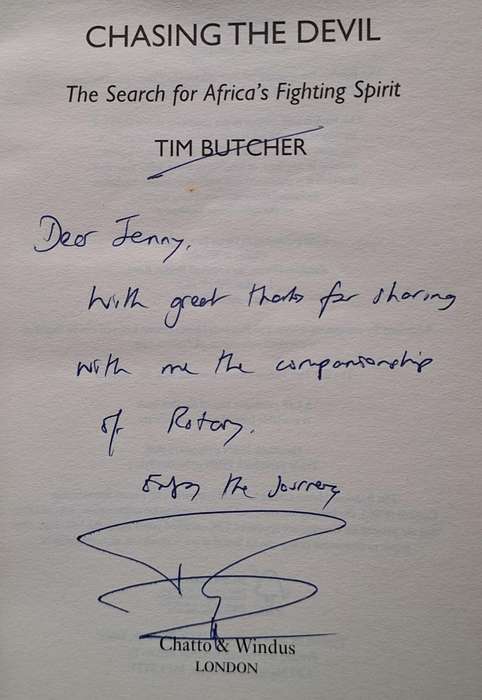 CHASING THE DEVIL
The Search for Africa's Fighting Spirit
TIM BUTCHER
Dear Jenny,
With great thanks for sharing
with me the companionship
of Rotary.
Enjoy the journey
Chatto & Windus
LONDON